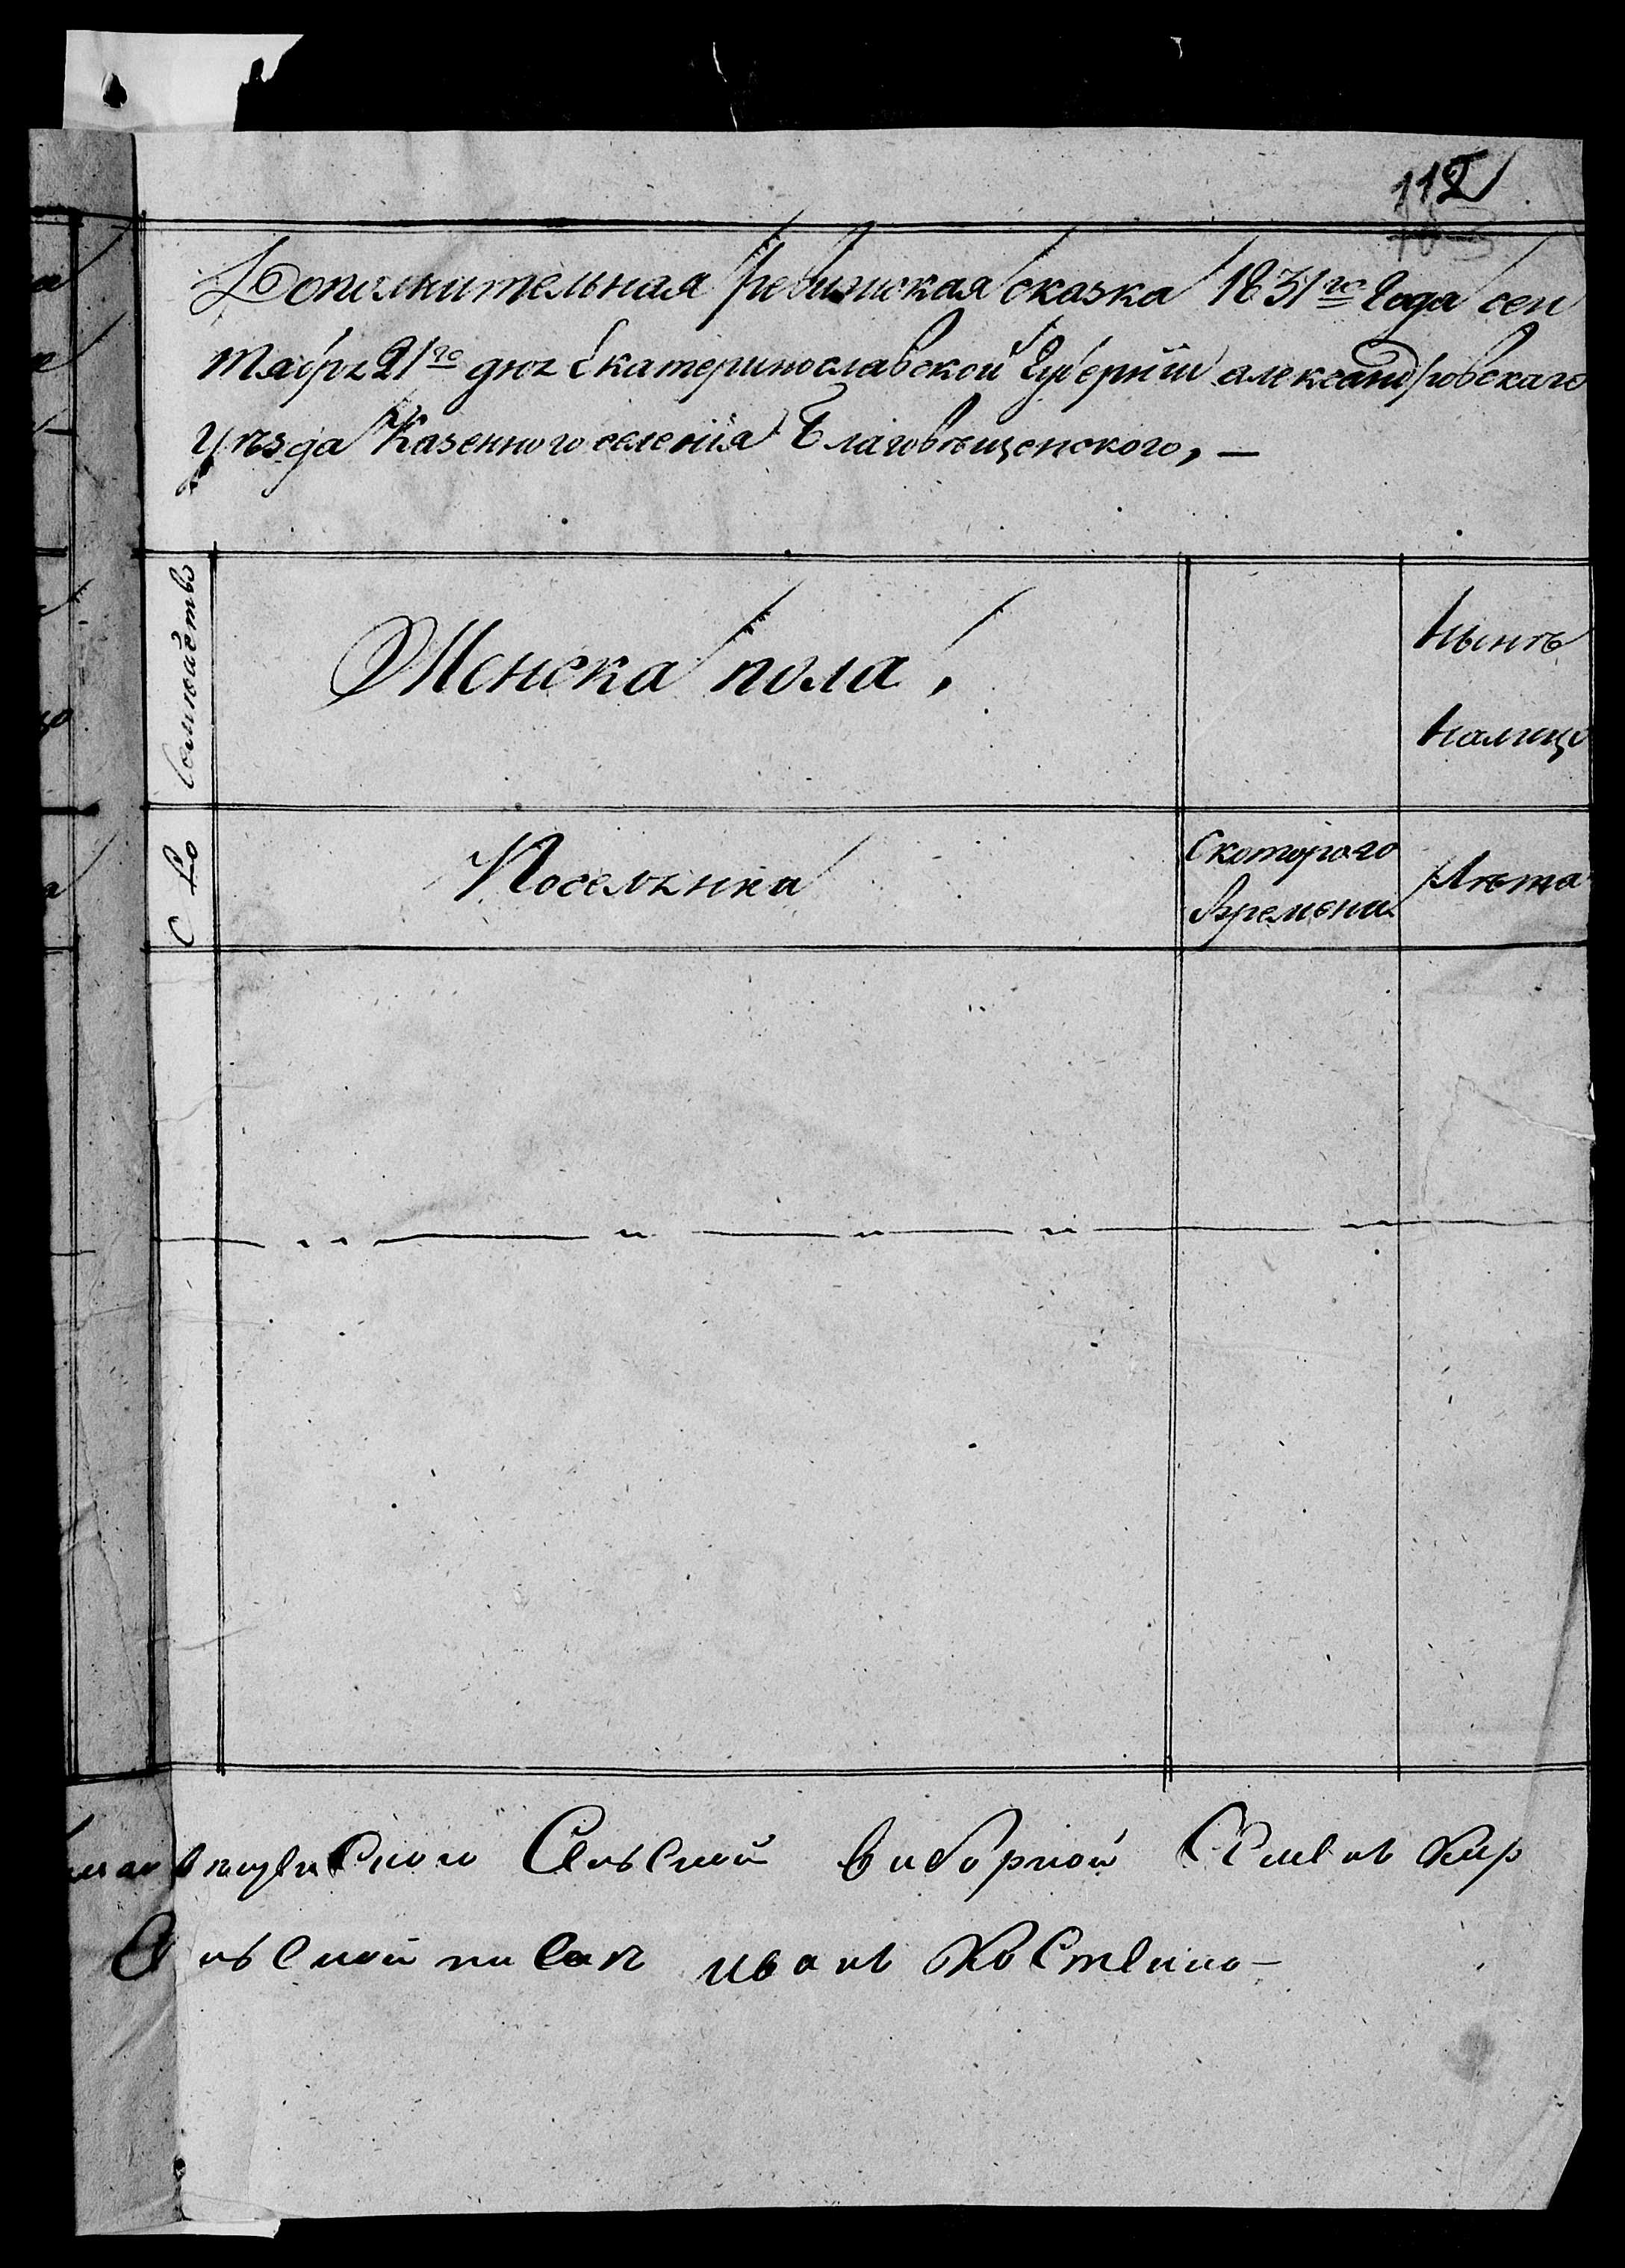 112
Дополнительная ревизиская сказка 1831го года сен
таѣря 21го дня Екатеринославской губернiи александровскаго
уѣзда Казенного селенiя Благовѣщенского, —
Семѣйство
Женска пола,
Нынѣ
налицо
№
Поселянки
Скоторого
Времени
Лѣта
Сельской виборной Семен Кир
Сельской писар иван Костенко